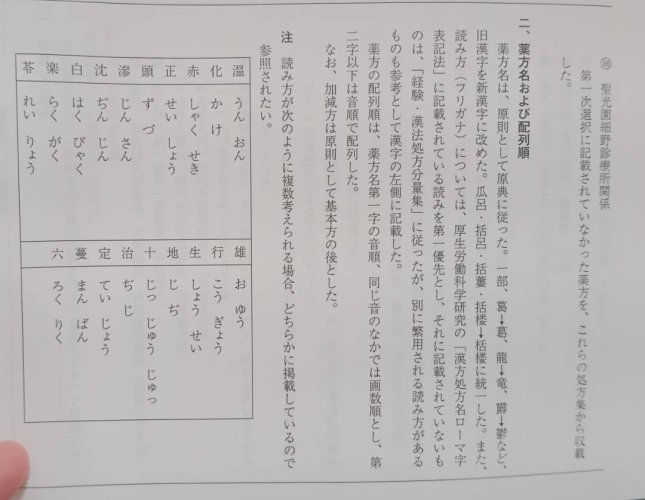 ㈣ 聖光園細野診療所関係
第一次選択に記載されていなかった薬方を、これらの処方集から収載
した。
二、薬方名および配列順
薬方名は、原則として原典に従った。一部、葛→葛、龍→竜、欝→鬱など、
旧漢字を新漢字に改めた。瓜呂・括呂・括蔞・括楼→栝楼に統一した。また、
読み方（フリガナ）については、厚生労働科学研究の「漢方処方名ローマ字
表記法」に記載されている読みを第一優先とし、それに記載されていないも
のは、「経験・漢法処方分量集」に従ったが、別に繁用される読み方がある
ものも参考として漢字の左側に記載した。
薬方の配列順は、薬方名第一字の音順、同じ音のなかでは画数順とし、第
二字以下は音順で配列した。
なお、加減方は原則として基本方の後とした。
注 読み方が次のように複数考えられる場合、どちらかに掲載しているので
参照されたい。
温 うん おん
化 か け
赤 しゃく せき
正 せい しょう
頭 ず づ
滲 じん さん
沈 ぢん じん
白 はく びゃく
楽 らく がく
苓 れい りょう
雄 お ゆう
行 こう ぎょう
生 しょう せい
地 じ ぢ
十 じっ じゅう じゅっ
治 ぢ じ
定 てい じょう
蔓 まん ばん
六 ろく りく